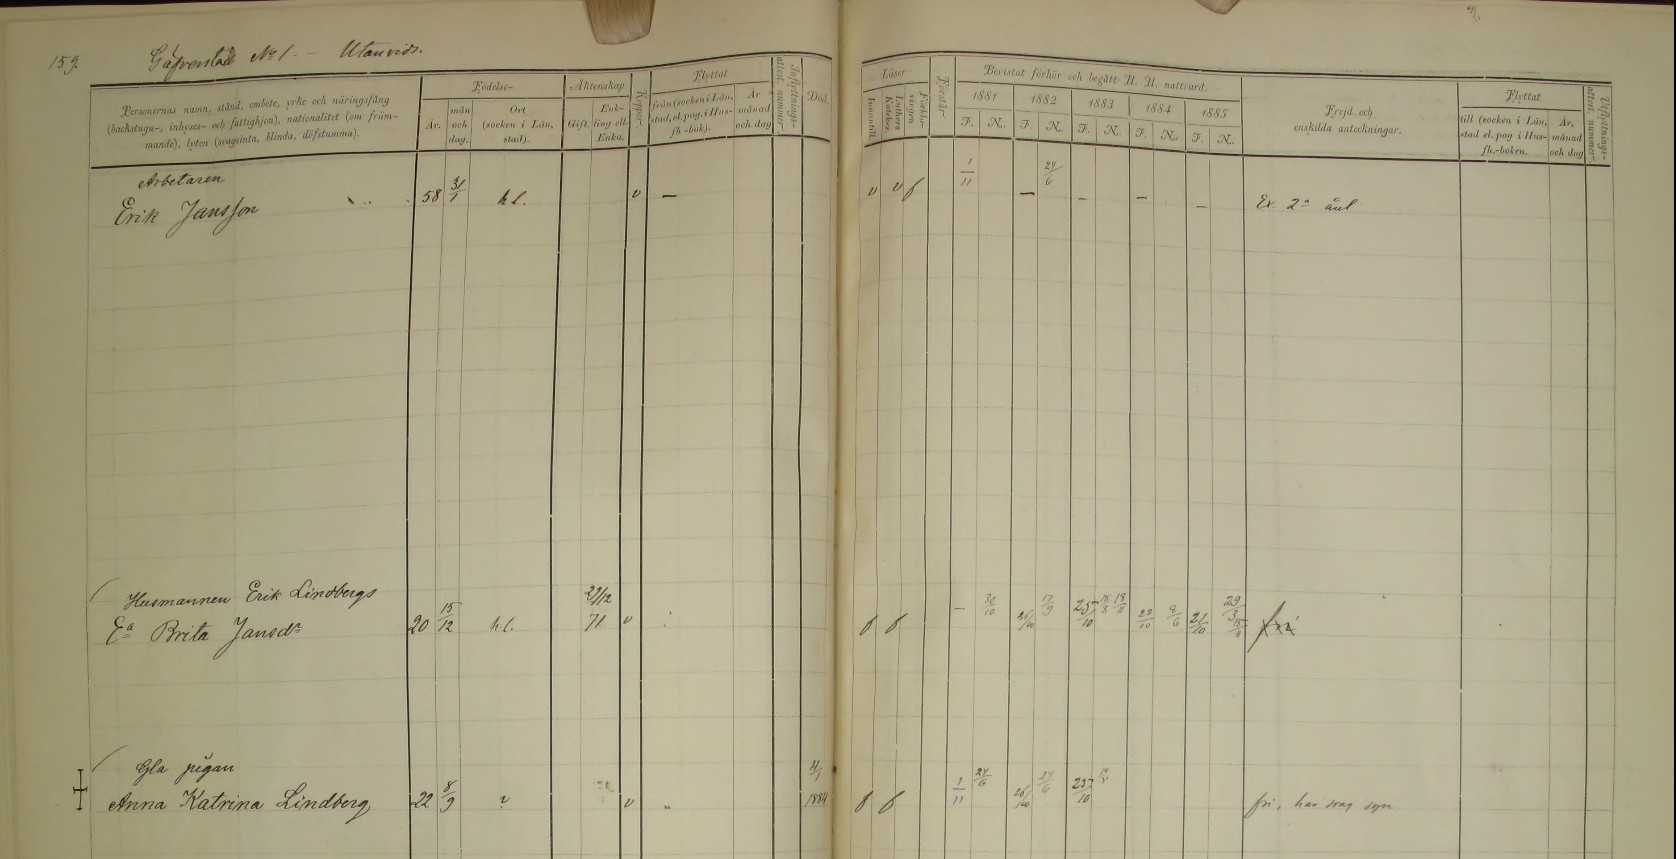 159.
Gåfverstad No 1 – Utanvids.
Personernas namn, stånd, embete, yrke och näringsfång
(backstugu-, inhyses- och fattighjon), nationalitet (om främ-
mande), lyten (svagsinta, blinda, döfstumma).
Födelse-
År.
mån
och
dag.
Ort
(socken i Län,
stad).
Äktenskap
Gift.
Enk-
ling ell.
Enka.
Koppor
Flyttat
från (socken i Län,
stad, el. pag. i Hus-
fh.-bok).
År
månad
och dag
Inflyttnings-
attest. nummer
Död.
Läser
Innantill.
Luthers
Katekes.
Förkla-
ringen
Förstår.
Bevistat förhör och begått H. H. nattvard.
1881 1882 1883 1884 1885
F. N. F. N. F. N. F. N. F. N.
Frejd och
enskilda anteckningar.
Flyttat
till (socken i Län,
stad el. pag i Hus-
fh.-boken.
År,
månad
och dag
Utflyttnings-
attest. nummer
Arbetaren
Erik Jansson 58 31/1 h.l. v — v v f 1/11 24/6 — — — — Ex 2a äkt
Husmannen Erik Lindbergs 29/12
Ea Brita Jansdr 20 15/12 h.l. 71 v f f — 30/10 17/9 25/10 29/10 9/6 21/10 29/3 fri
Gla pigan 4/1
Anna Katrina Lindberg 22 8/9 v „ 1884 f f 1/11 24/6 26/10 24/6 25/10 fri, har svag syn